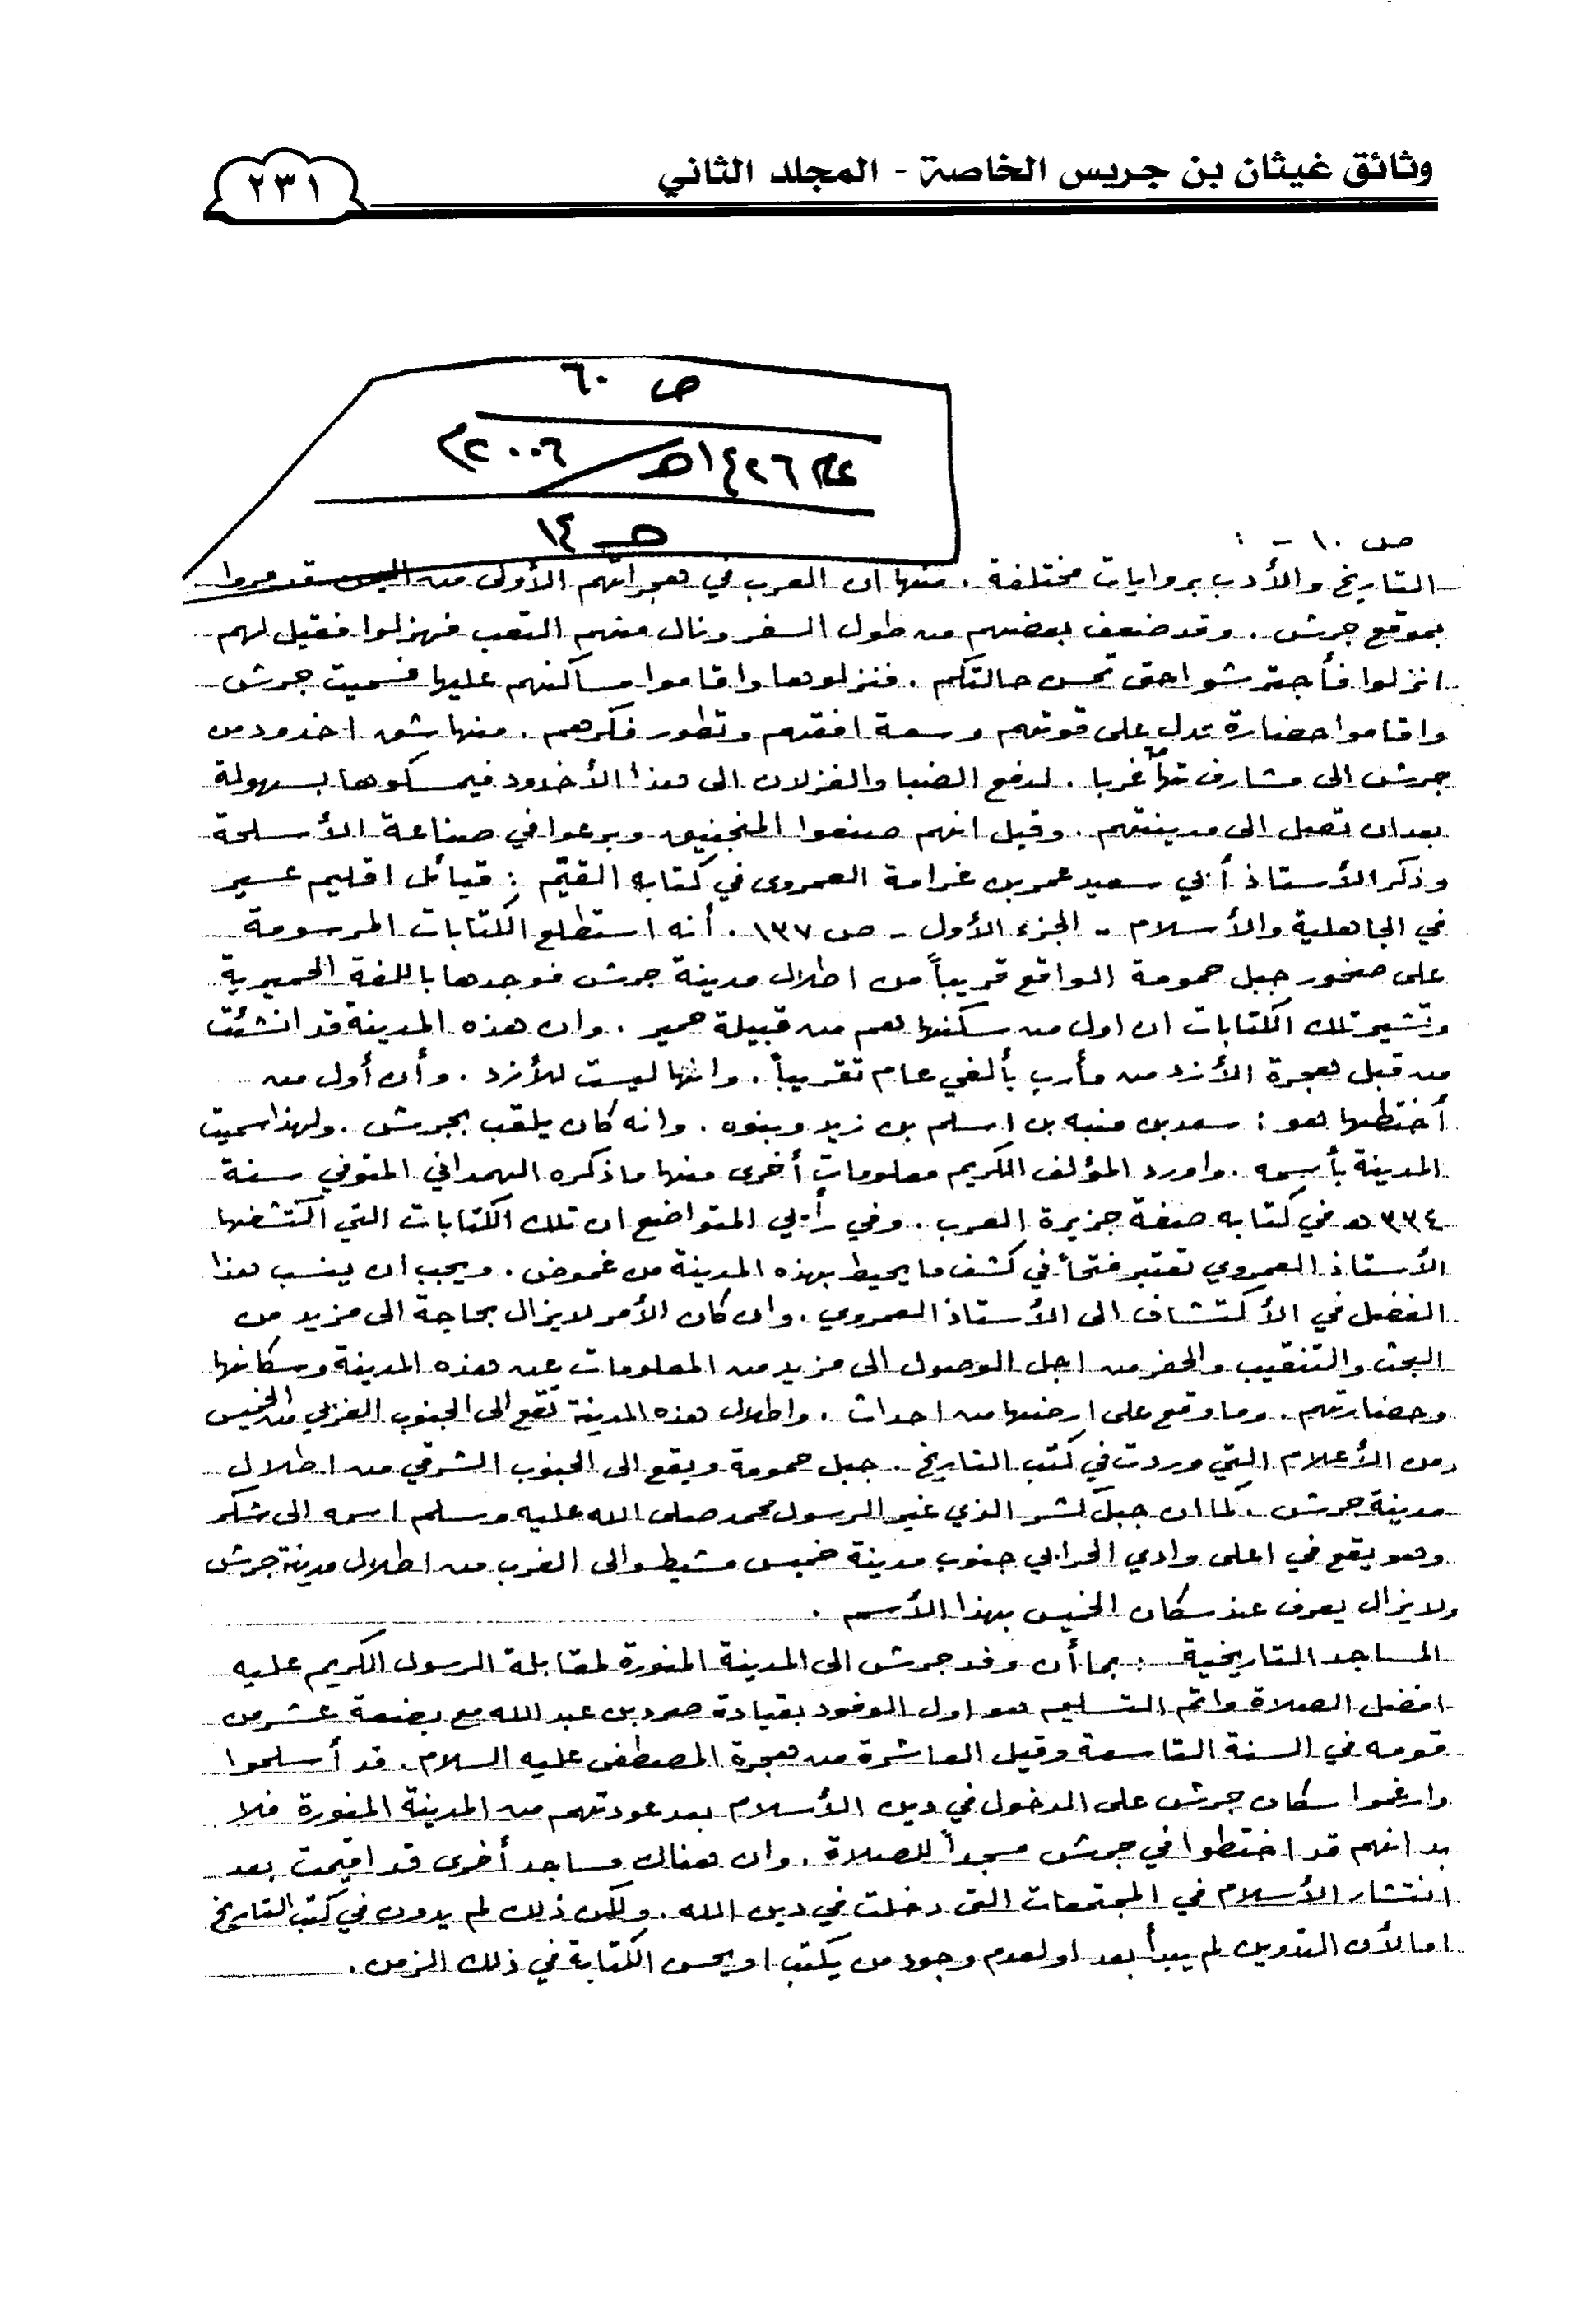 وثائق غيثان بن جريس الخاصة - المجلد الثاني
٢٣١
ص ٦٠
١٤٢٦هـ/٢٠٠٦م
ص ١٤
ص ١٠ - :
التاريخ والأدب بروايات مختلفة . منها ان العرب في هجراتهم الأولى من اليمن قد مروا
بموقع جرش . وقد ضعف بعضهم من طول السفر ونال منهم التعب فهزلوا فقيل لهم
انزلوا فأجترشوا حتى تحسن حالتكم . فنزلوها واقاموا مساكنهم عليها فسميت جرش
واقاموا حضارة تدل على قوتهم وسعة افقهم وتطور فكرهم . منها شق اخدود من
جرش الى مشارف تهامة غربا . لدفع الضبا والغزلان الى هذا الأخدود فيمسكوها بسهولة
بعد ان تصل الى مدينتهم . وقيل انهم صنعوا المنجنيق وبرعوا في صناعة الأسلحة
وذكر الأستاذ أبي سعيد عمر بن غرامة العمروي في كتابه القيّم : قبائل اقليم عسير
في الجاهلية والأسلام - الجزء الأول - ص ١٣٧ . أنه استطلع الكتابات المرسومة
على صخور جبل حمومة الواقع قريباً من اطلال مدينة جرش فوجدها باللغة الحميرية
وتشير تلك الكتابات ان اول من سكنها هم من قبيلة حمير . وان هذه المدينة قد انشئت
من قبل هجرة الأزد من مأرب بألفي عام تقريباً . وانها ليست للأزد . وأن أول من
أختطها هو : سعد بن منبه بن اسلم بن زيد وبنوه . وانه كان يلقب بجرش . ولهذا سميت
المدينة بأسمه . واورد المؤلف الكريم معلومات أخرى منها ما ذكره الهمداني المتوفي سنة
٣٣٤ هـ في كتابه صفة جزيرة العرب . وفي رأيي المتواضع ان تلك الكتابات التي اكتشفها
الأستاذ العمروي تعتبر فتحاً في كشف ما يحيط بهذه المدينة من غموض . ويجب ان ينسب هذا
الفضل في الأكتشاف الى الأستاذ العمروي . وان كان الأمر لا يزال بحاجة الى مزيد من
البحث والتنقيب والحفر من اجل الوصول الى مزيد من المعلومات عن هذه المدينة وسكانها
وحضارتهم . وما وقع على ارضها من احداث . واطلال هذه المدينة تقع الى الجنوب الغربي من الخميس
ومن الأعلام التي وردت في كتب التاريخ . جبل حمومة ويقع الى الجنوب الشرقي من اطلال
مدينة جرش . كما ان جبل كشر الذي غير الرسول محمد صلى الله عليه وسلم اسمه الى شكر
وهو يقع في اعلى وادي الحرابي جنوب مدينة خميس مشيط والى الغرب من اطلال مدينة جرش
ولا يزال يعرف عند سكان الخميس بهذا الأسم .
المساجد التاريخية : بما أن وفد جرش الى المدينة المنورة لمقابلة الرسول الكريم عليه
افضل الصلاة واتم التسليم هو اول الوفود بقيادة صرد بن عبد الله مع بضعة عشر من
قومه في السنة التاسعة وقيل العاشرة من هجرة المصطفى عليه السلام . قد أسلموا
وارغموا سكان جرش على الدخول في دين الأسلام بعد عودتهم من المدينة المنورة فلا
بد انهم قد اختطوا في جرش مسجداً للصلاة . وان هناك مساجد أخرى قد اقيمت بعد
انتشار الأسلام في المجتمعات التي دخلت في دين الله . ولكن ذلك لم يدون في كتب التاريخ
اما لأن التدوين لم يبدأ بعد او لعدم وجود من يكتب او يحسن الكتابة في ذلك الزمن .